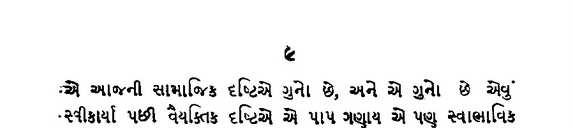 ૯
એ આજની સામાજિક દષ્ટિએ ગુનો છે, અને એ ગુનો છે એવું
સ્વીકાર્યા પછી વૈયક્તિક દષ્ટિએ એ પાપ ગણાય એ પણ સ્વાભાવિક